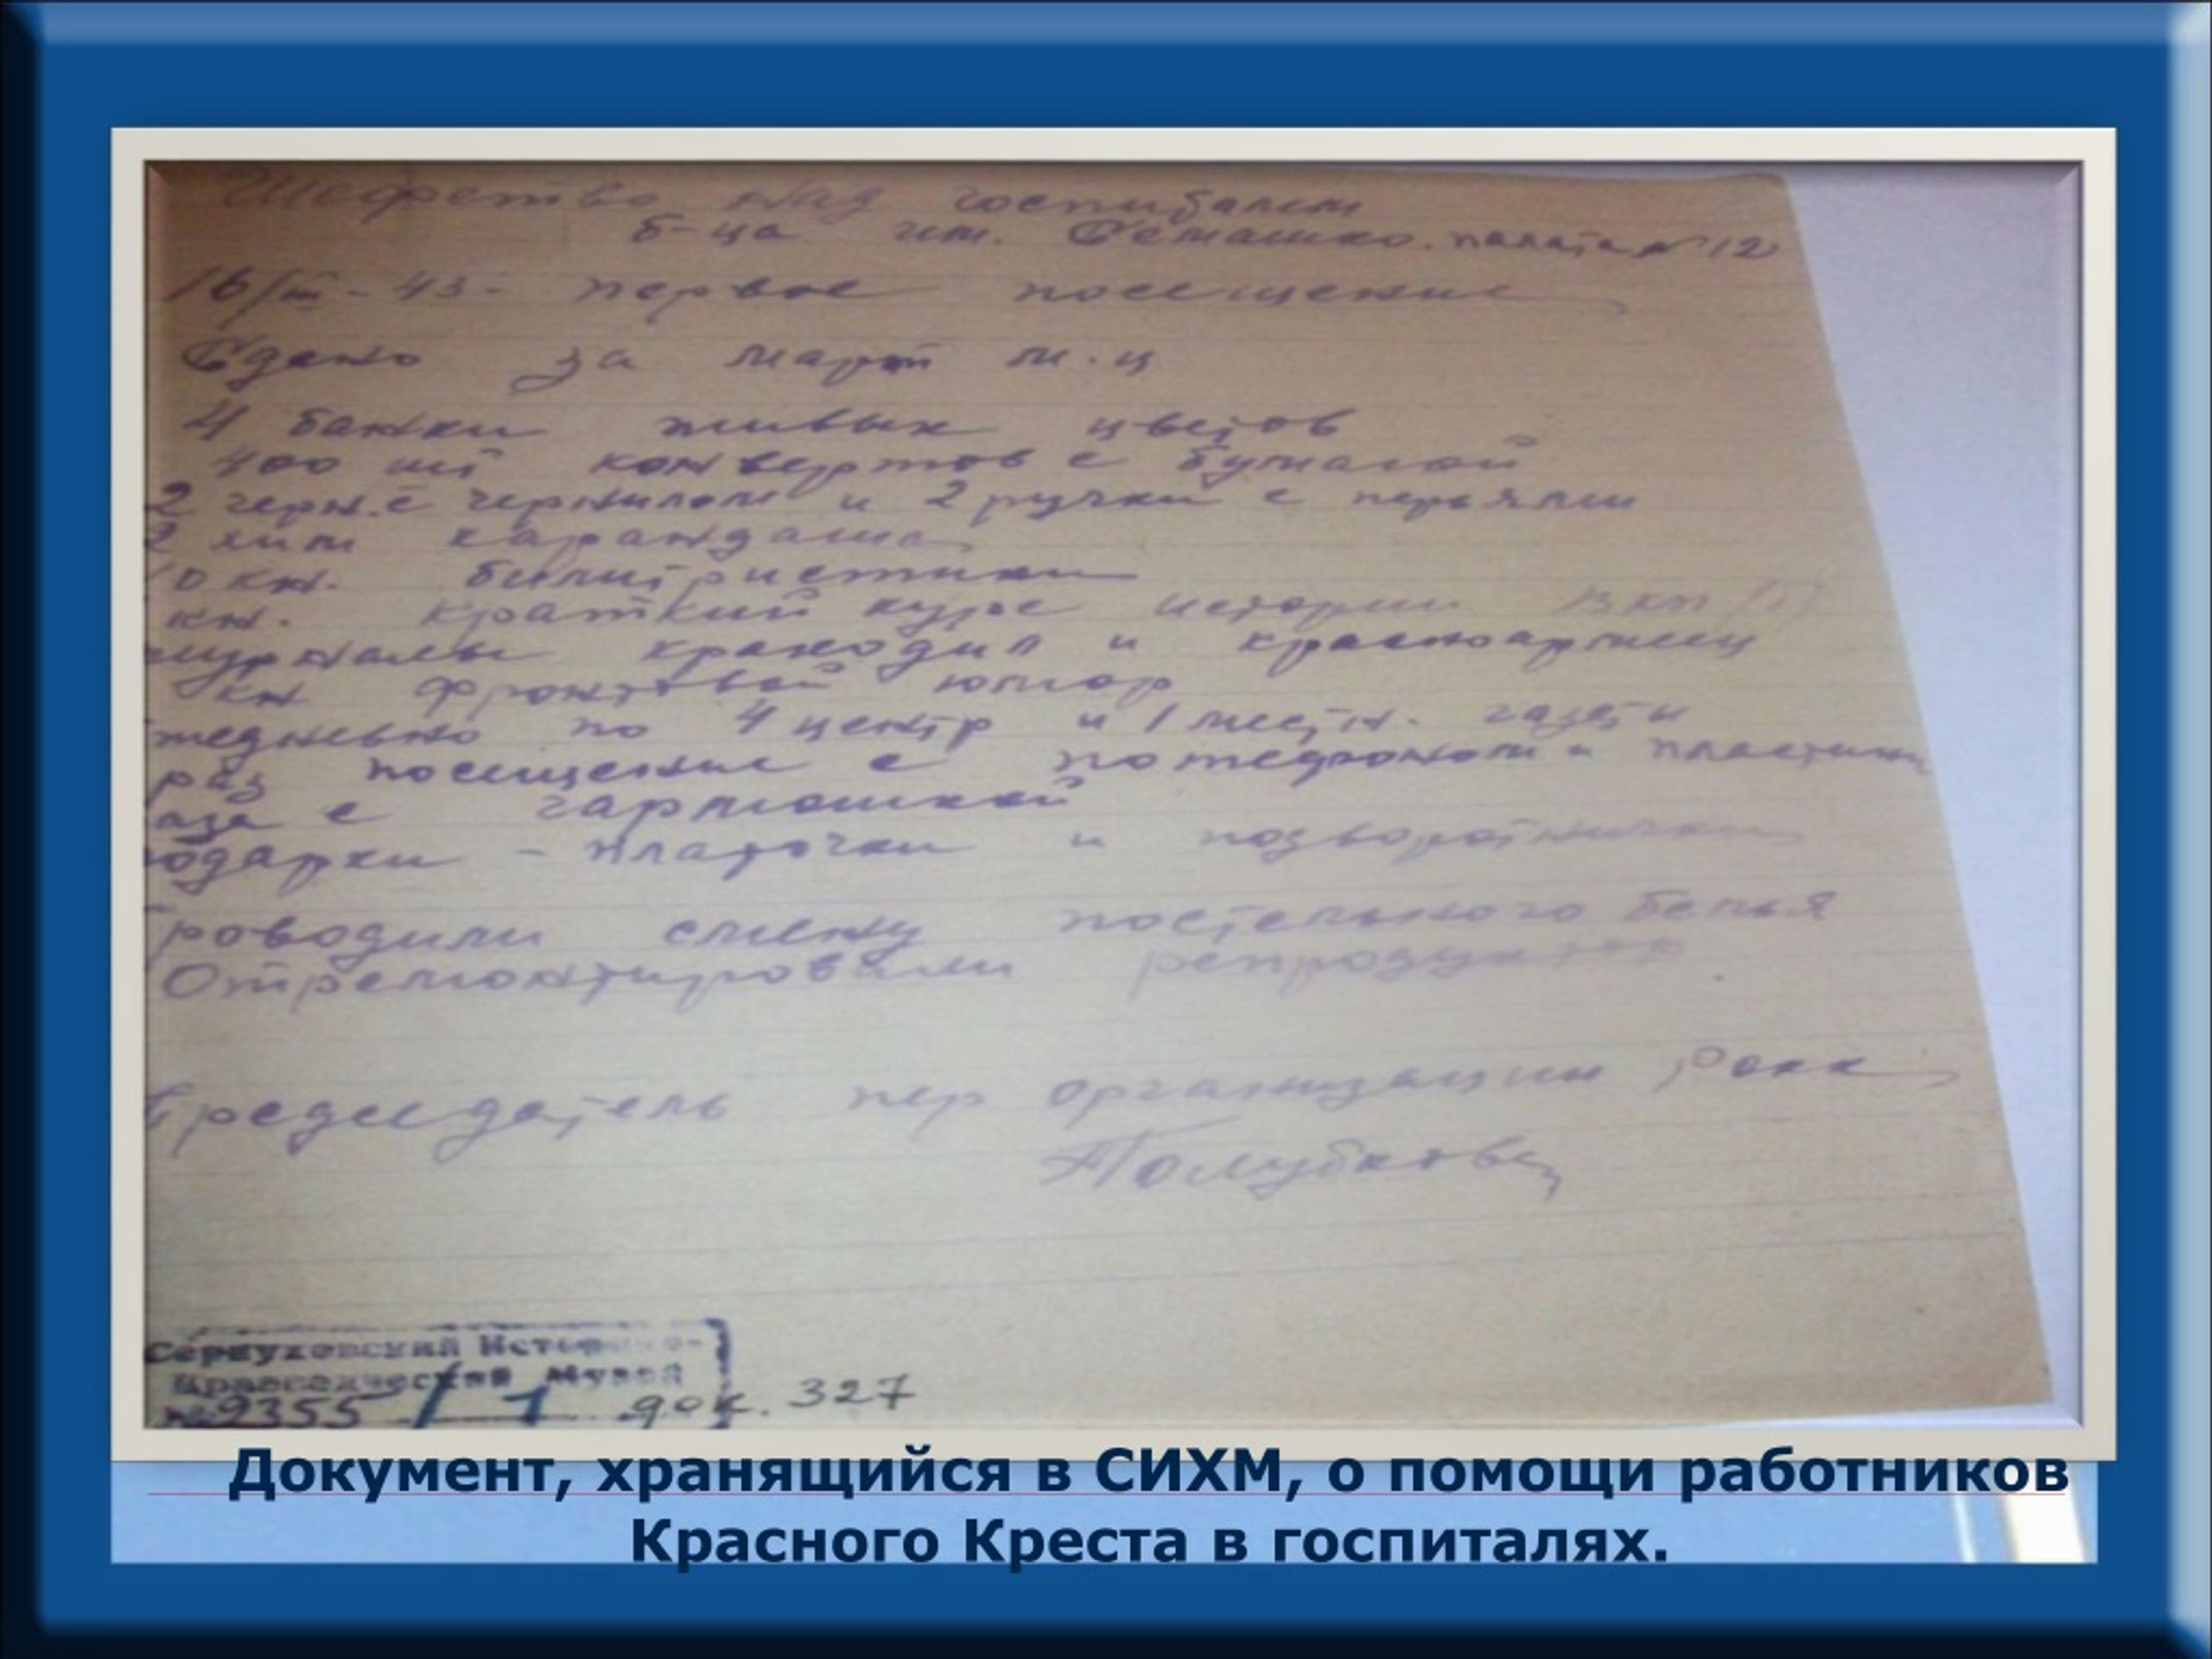 Шефство над госпиталем
б-ца им. Семашко. палата №12
16/III-43- первое посещение
Сдано за март м.ц
4 банки живых цветов
400 шт конвертов с бумагой
2 черн. с чернилом и 2 ручки с перьями
2 хим карандаша
0 кн. билитристики
кн. краткий курс истории ВКП(б)
журналы крокодил и красноармеец
кн фронтовой юмор
жедневно по 4 центр и 1 местн. газеты
раз посещение с патефоном и пластинк
аза с гармошкой
одарки - платочки и подворотнички
роводили смену постельного белья
Отремонтировали репродуктор
Председатель пер организации Рокк
Голубкова
Серпуховский Историко-
Краеведческий Музей
№ 9355/1 док. 327
Документ, хранящийся в СИХМ, о помощи работников
Красного Креста в госпиталях.